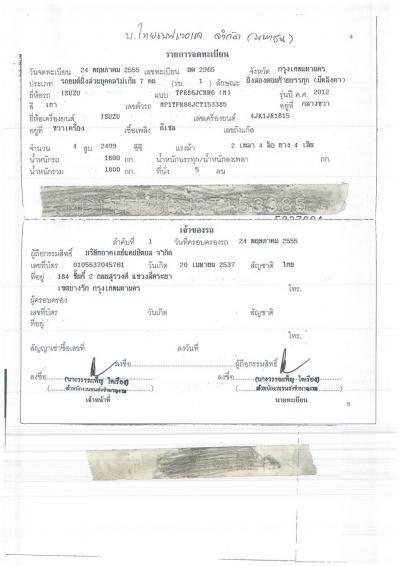 4
รายการจดทะเบียน
วันจดทะเบียน 24 พฤษภาคม 2555 เลขทะเบียน ฒต 2965 จังหวัด กรุงเทพมหานคร
ประเภท รถยนต์นั่งส่วนบุคคลไม่เกิน 7 คน (รย. 1) ลักษณะ นั่งสองตอนท้ายบรรทุก (มีหลังคา)
ยี่ห้อรถ ISUZU แบบ TFR86JCRH6 (M) รุ่นปี ค.ศ. 2012
สี เทา เลขตัวรถ MP1TFR86JCT153385 อยู่ที่ กลางขวา
ยี่ห้อเครื่องยนต์ ISUZU เลขเครื่องยนต์ 4JK1JR1815
อยู่ที่ ขวาเครื่อง เชื้อเพลิง ดีเซล เลขถังแก๊ส
จำนวน 4 สูบ 2499 ซีซี แรงม้า 2 เพลา 4 ล้อ ยาง 4 เส้น
น้ำหนักรถ 1800 กก. น้ำหนักบรรทุก/น้ำหนักลงเพลา กก.
น้ำหนักรวม 1800 กก. ที่นั่ง 5 คน
เจ้าของรถ
ลำดับที่ 1 วันที่ครอบครองรถ 24 พฤษภาคม 2555
ผู้ถือกรรมสิทธิ์
เลขที่บัตร 0105537045761 วันเกิด 20 เมษายน 2537 สัญชาติ ไทย
ที่อยู่ 184 ชั้นที่ 2 ถนนสุรวงศ์ แขวงสี่พระยา
เขตบางรัก กรุงเทพมหานคร โทร.
ผู้ครอบครอง
เลขที่บัตร วันเกิด สัญชาติ
ที่อยู่
โทร.
สัญญาเช่าซื้อเลขที่ ลงวันที่
ลงชื่อ ผู้ถือกรรมสิทธิ์
ลงชื่อ ลงชื่อ
เจ้าหน้าที่ นายทะเบียน
5